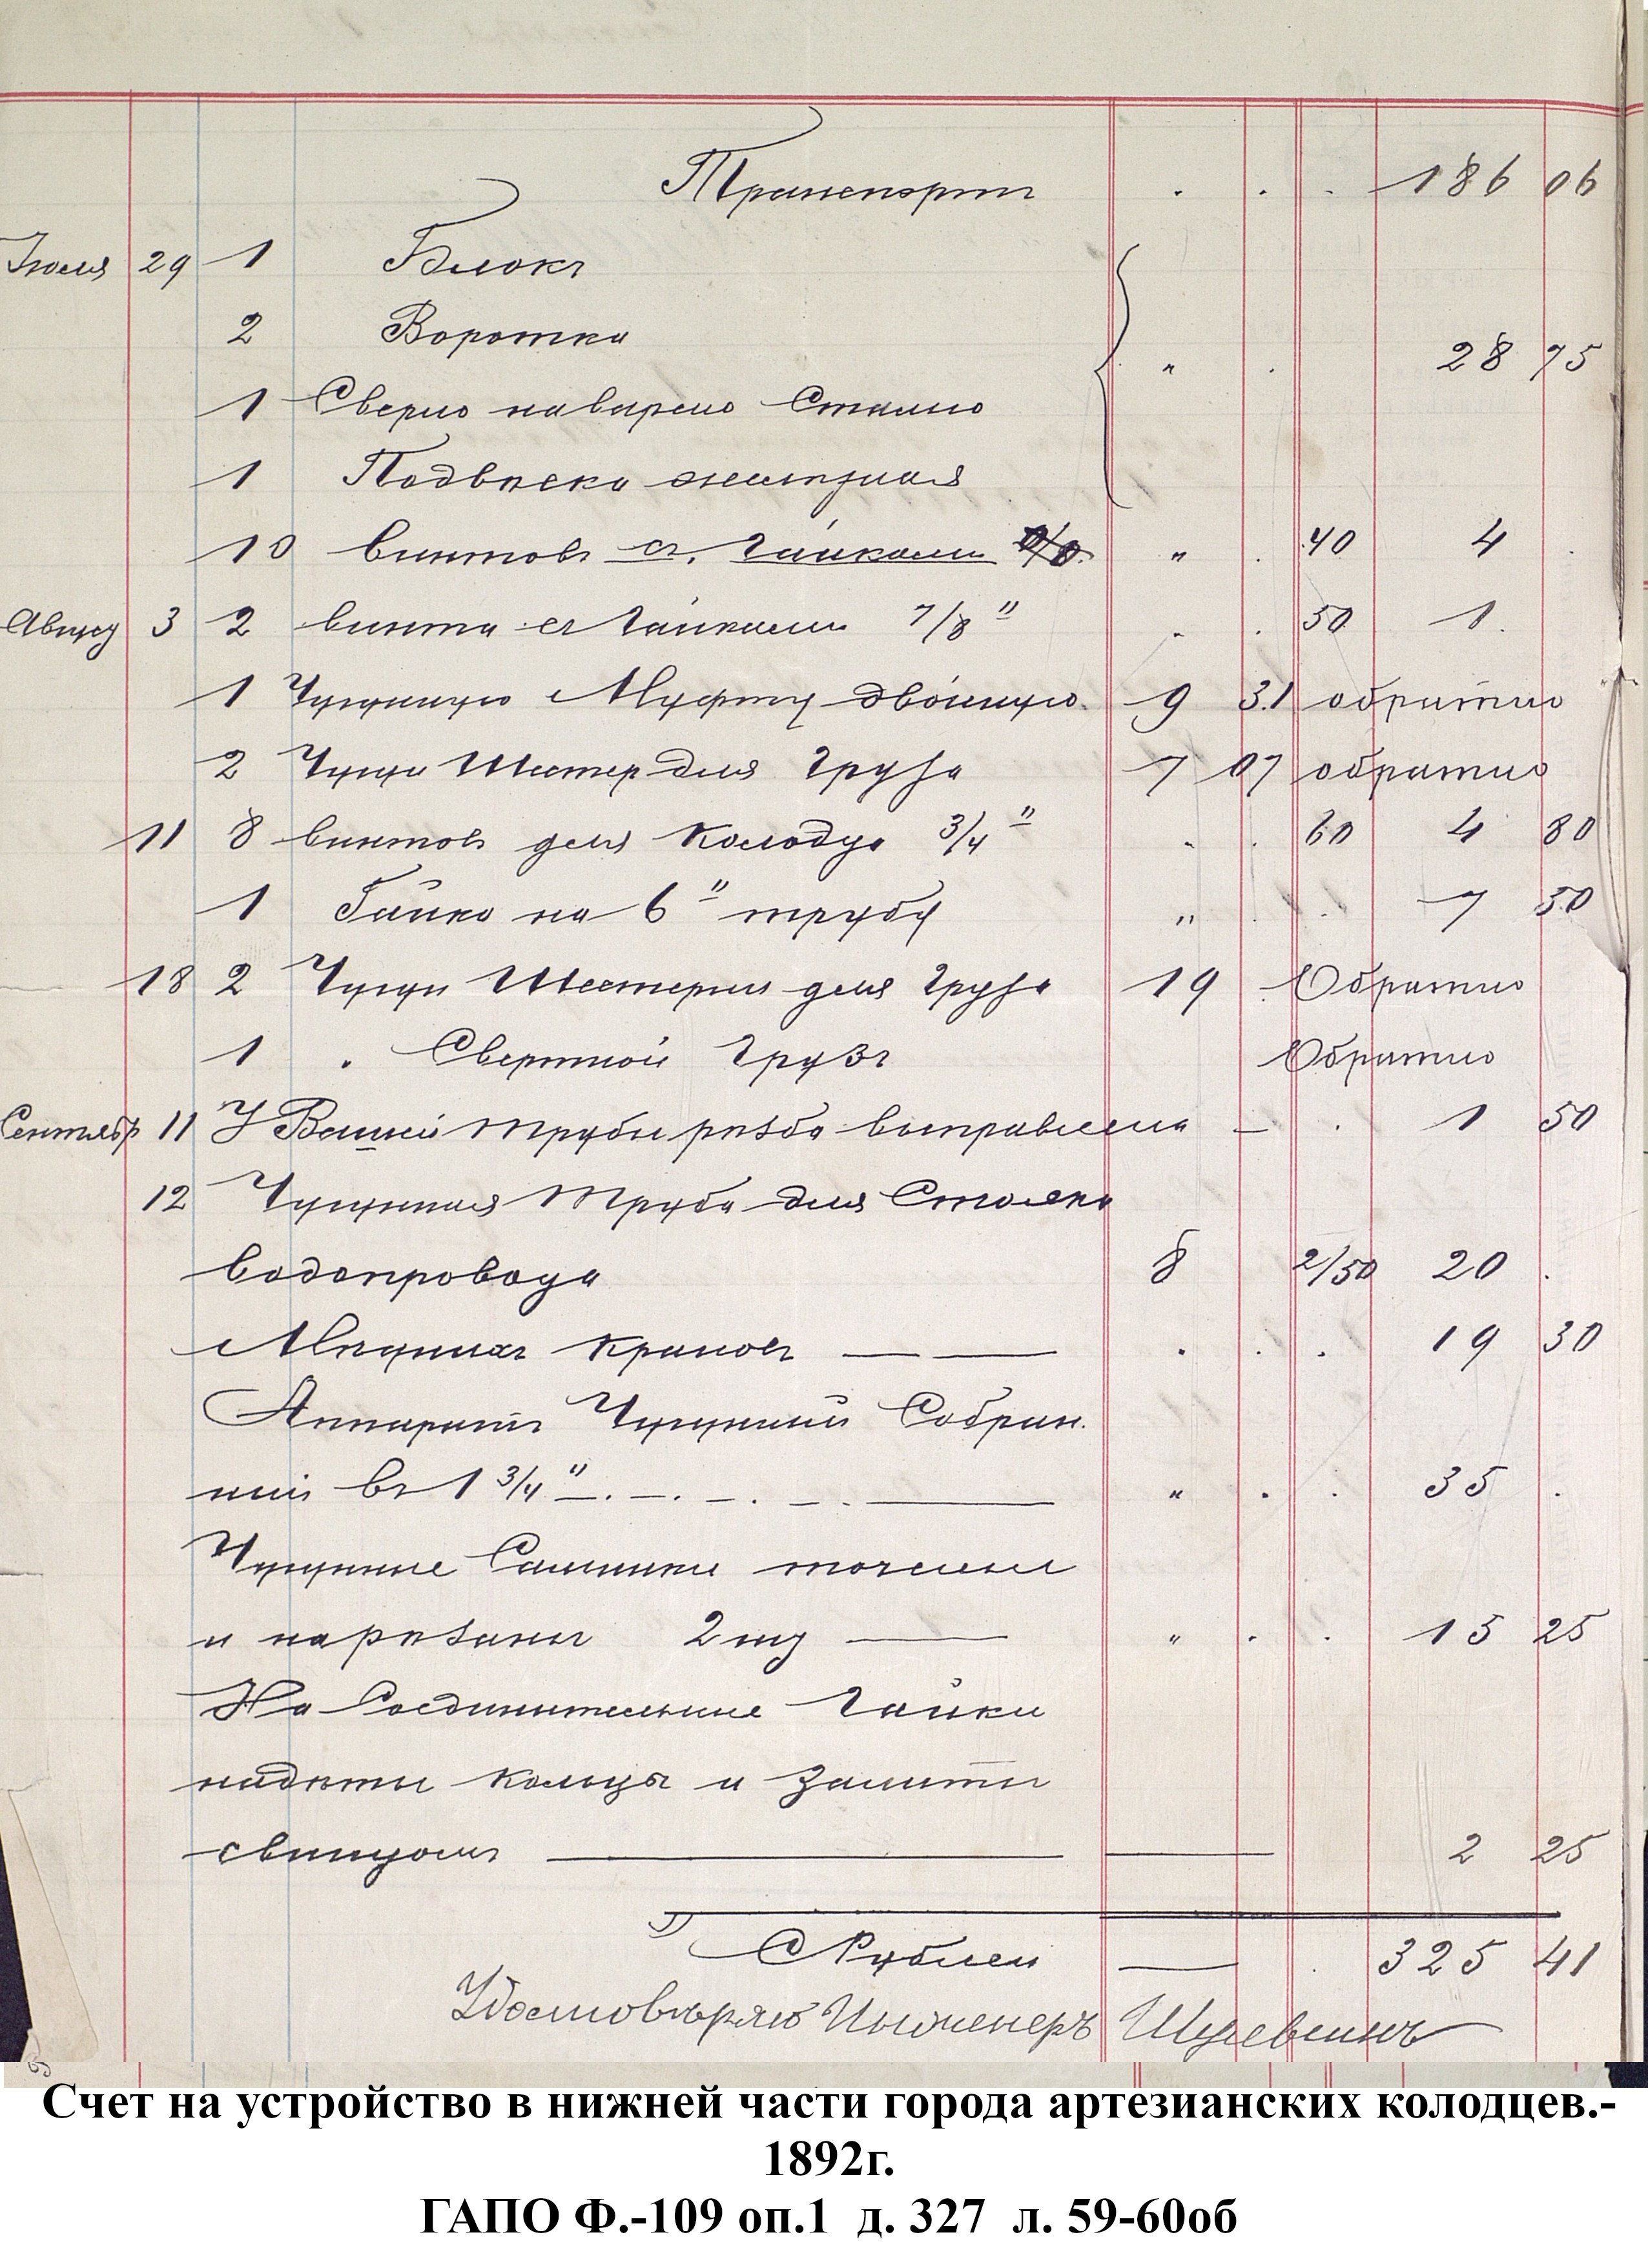 Транспортъ . . . 186 06
Іюля 29 1 Блокъ
2 Воротка
" . 28 75
1 Сверло наварено Сталью
1 Подвѣска желѣзная
10 винтовъ съ гайками " . 40 4 .
Август 3 2 винта съ гайками 7/8" " . 50 1 .
1 Чугунную Муфту двойную 9 31 обратно
2 Чугун Шестер для груза 7 07 обратно
11 8 винтовъ для колодца 3/4" . . 60 4 80
1 Гайка на 6" трубу " . . 7 50
18 2 Чугун Шестерни для груза 19 . Обратно
1 " Свертной грузъ Обратно
Сентябр 11 У Вашей трубы рѣзба выправлена — . 1 50
12 Чугунная труба для Стояка
водопровода 8 2/50 20 .
Мѣдныхъ крановъ — — . . . 19 30
Аппаратъ Чугунный Собран.
ный въ 1 3/4" " . . 35 .
Чугунные Сальники точены
и нарѣзаны 2 шт — " . . 15 25
На Соединительные гайки
надѣты кольцы и залиты
свинцомъ — — 2 25
С Рублей — . 325 41
Удостовѣряю Инженеръ
Счет на устройство в нижней части города артезианских колодцев.-
1892г.
ГАПО Ф.-109 оп.1 д. 327 л. 59-60об